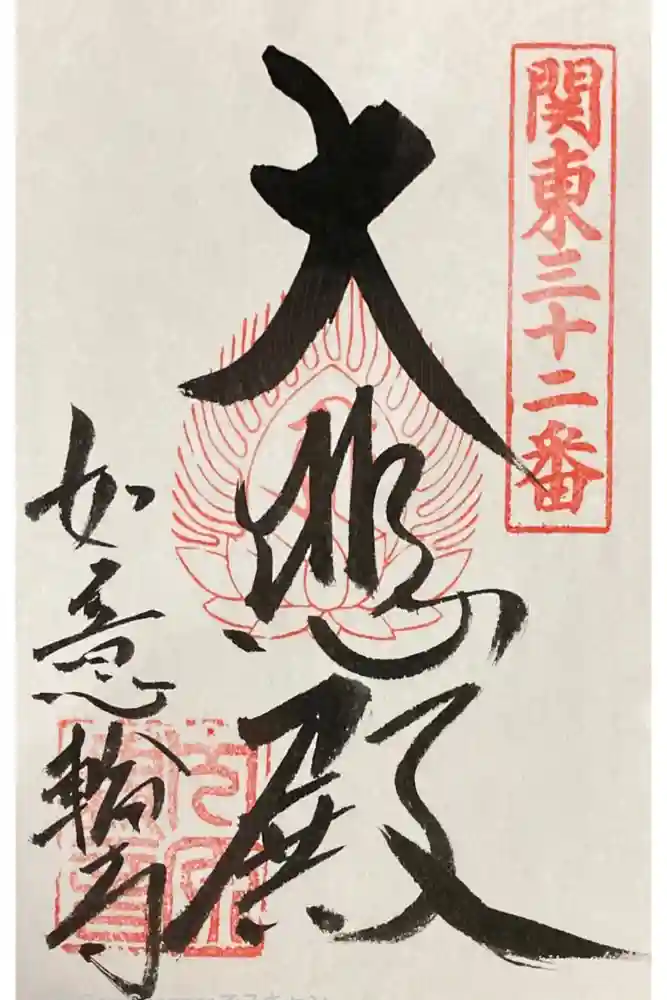 関東三十二番
大悲殿
如意輪寺